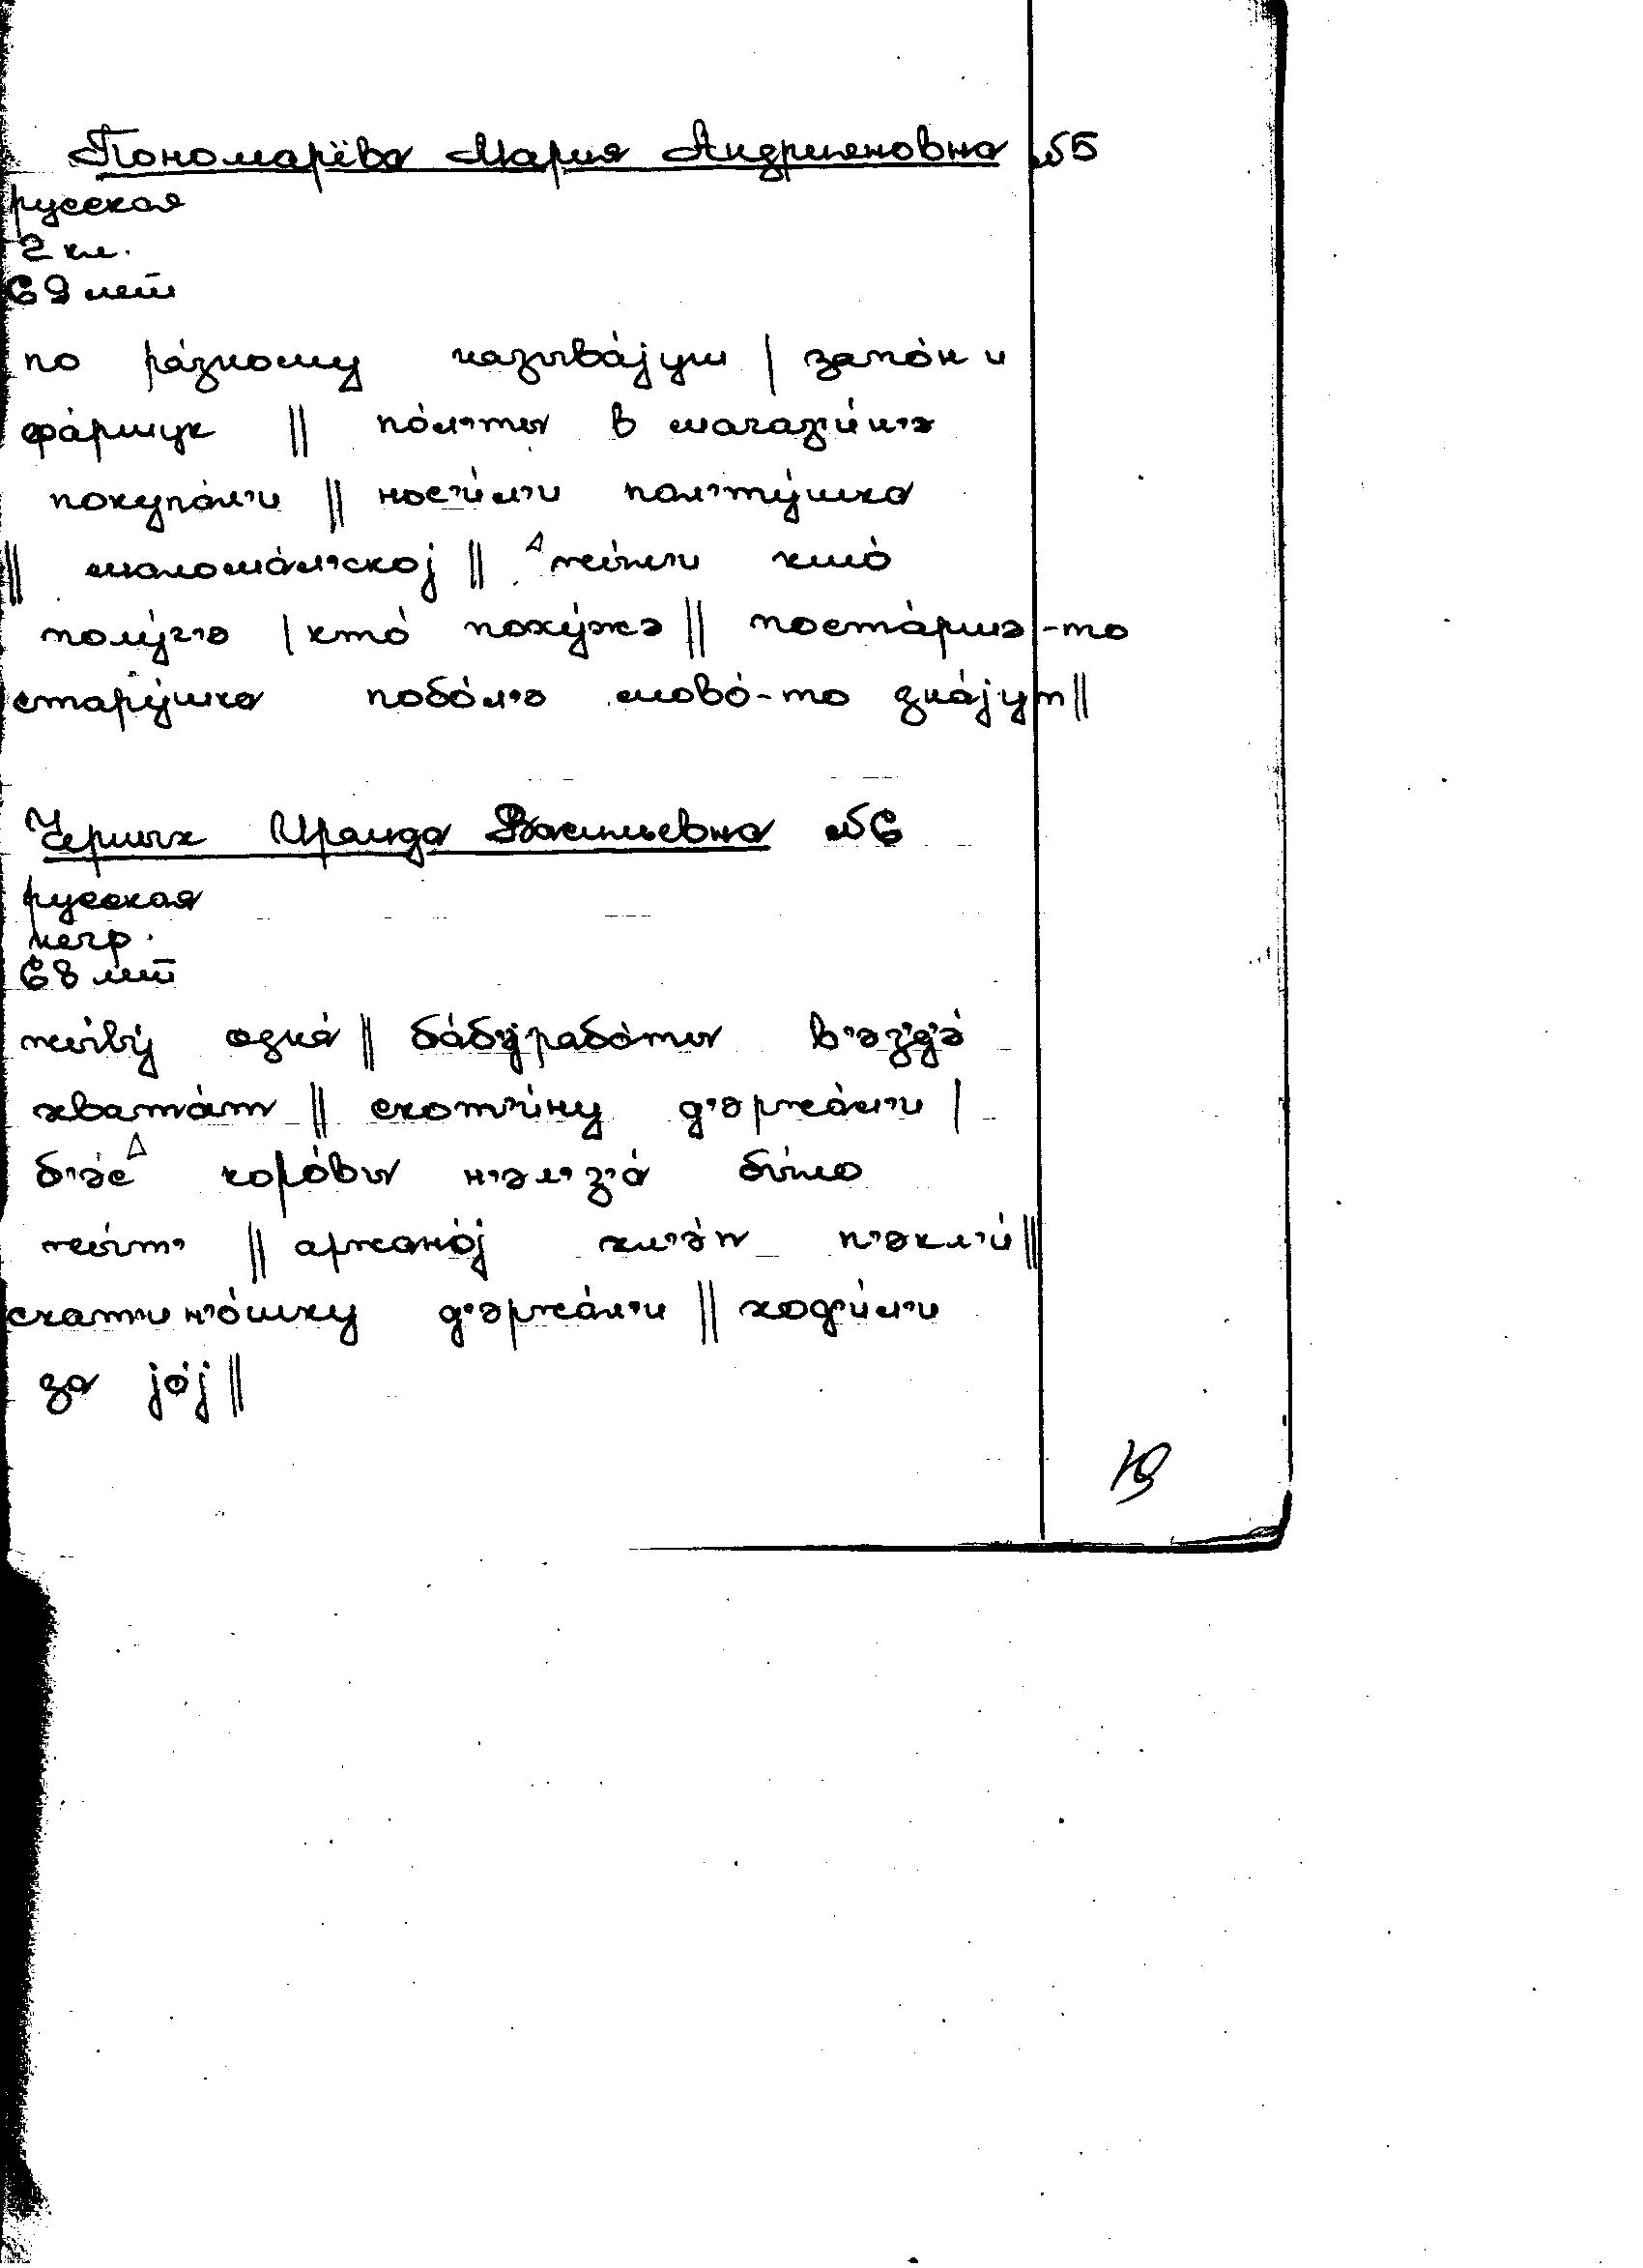 Пономарёва Мария Андрияновна №5
русская
2 кл.
69 лет
по ра́зному называ́jут | запо́н и
фа́ртук || по́л'ты в магаз'и́н'э
покупа́л'и || нос'и́л'и пол'ту́шка
|| шалоша́л'скоj || жы́л'и кто́
полу́чэ | кто́ поху́жэ || поста́ршэ-то
стару́шка побо́л'э слово́-то зна́jут ||
Черных Ираида Васильевна №6
русская
негр.
68 лет
жыву́ одна́ || ба́бу рабо́ты в'эз'д'э́
хвата́т || скот'и́ну д'эржа́л'и |
б'э́с коро́вы н'эл'з'а́ бы́ло
жы́т' || аржано́j хл'э́п п'экл'и́ ||
скат'ин'о́шку д'эржа́л'и || ход'и́л'и
за jо́j ||